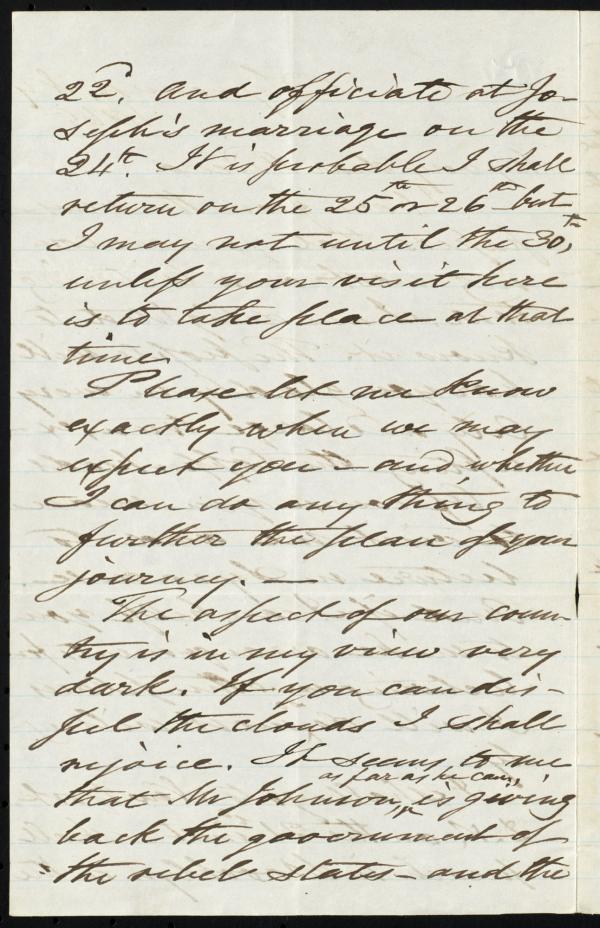 22d. and officiate at Jo-
seph's marriage on the
24th. It is probable I shall
return on the 25th or 26th but
I may not until the 30th,
unless your visit here
is to take place at that
time.
Please let me know
exactly when we may
expect you - and, whether
I can do any thing to
further the plan of your
journey. —
The aspect of our coun-
try is in my view very
dark. If you can dis-
pel the clouds I shall
rejoice. It seems to me
as far as he can,
that Mr Johnson, is giving
back the government of
the rebel states - and the